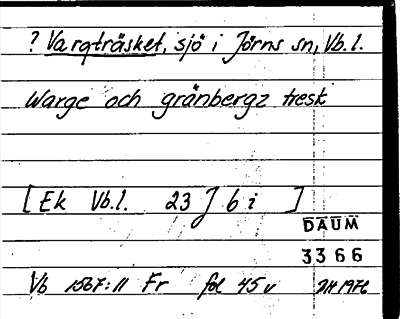 ? Vargträsket, sjö i Jörns sn, Vb. l.
Warge och gränbergz tresk
[Ek Vb.l. 23 J 6 i ]
DAUM
3366
Vb 1567:11 Fr fol 45 v 1976